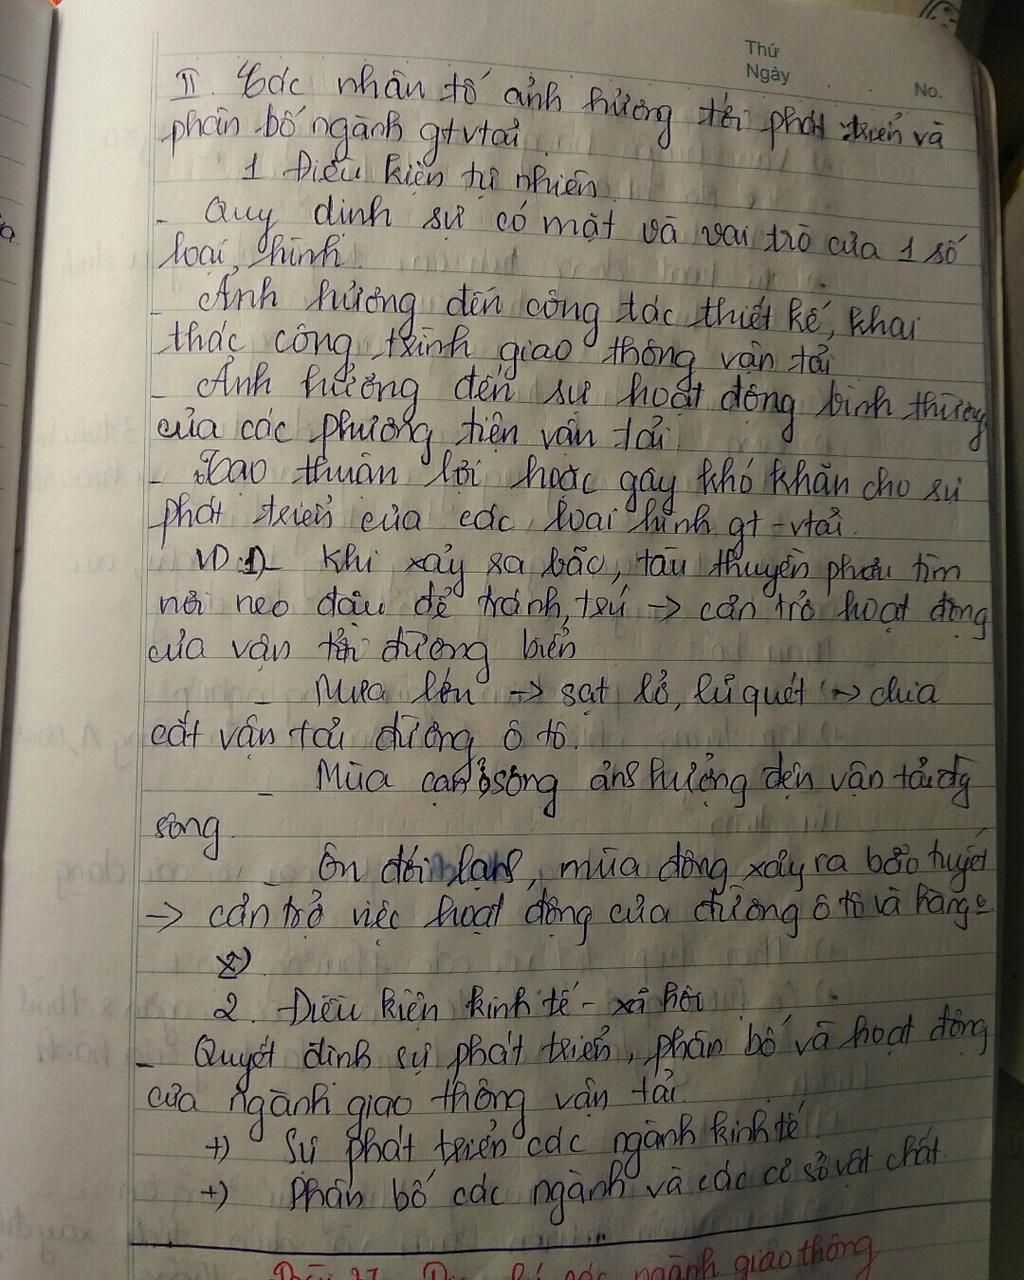 Thứ
Ngày
No.
II. Các nhân tố ảnh hưởng tới phát triển và
phân bố ngành gtvtải.
1 Điều kiện tự nhiên
- Quy định sự có mặt và vai trò của 1 số
loại hình.
- Ảnh hưởng đến công tác thiết kế, khai
thác công trình giao thông vận tải
- Ảnh hưởng đến sự hoạt động bình thường
của các phương tiện vận tải.
- Tạo thuận lợi hoặc gây khó khăn cho sự
phát triển của các loại hình gt-vtải.
VD:1)- Khi xảy ra bão, tàu thuyền phải tìm
nơi neo đậu để tránh, trú → cản trở hoạt động
của vận tải đường biển
- Mưa lớn → sạt lở, lũ quét → chia
cắt vận tải đường ô tô.
- Mùa cạn ở sông ảnh hưởng đến vận tải đg
sông.
- Ôn đới lạnh, mùa đông xảy ra bão tuyết
→ cản trở việc hoạt động của đường ô tô và hàng
2. Điều kiện kinh tế - xã hội
- Quyết định sự phát triển, phân bố và hoạt động
của ngành giao thông vận tải.
+) Sự phát triển các ngành kinh tế.
+) Phân bố các ngành và các cơ sở vật chất.
các ngành giao thông